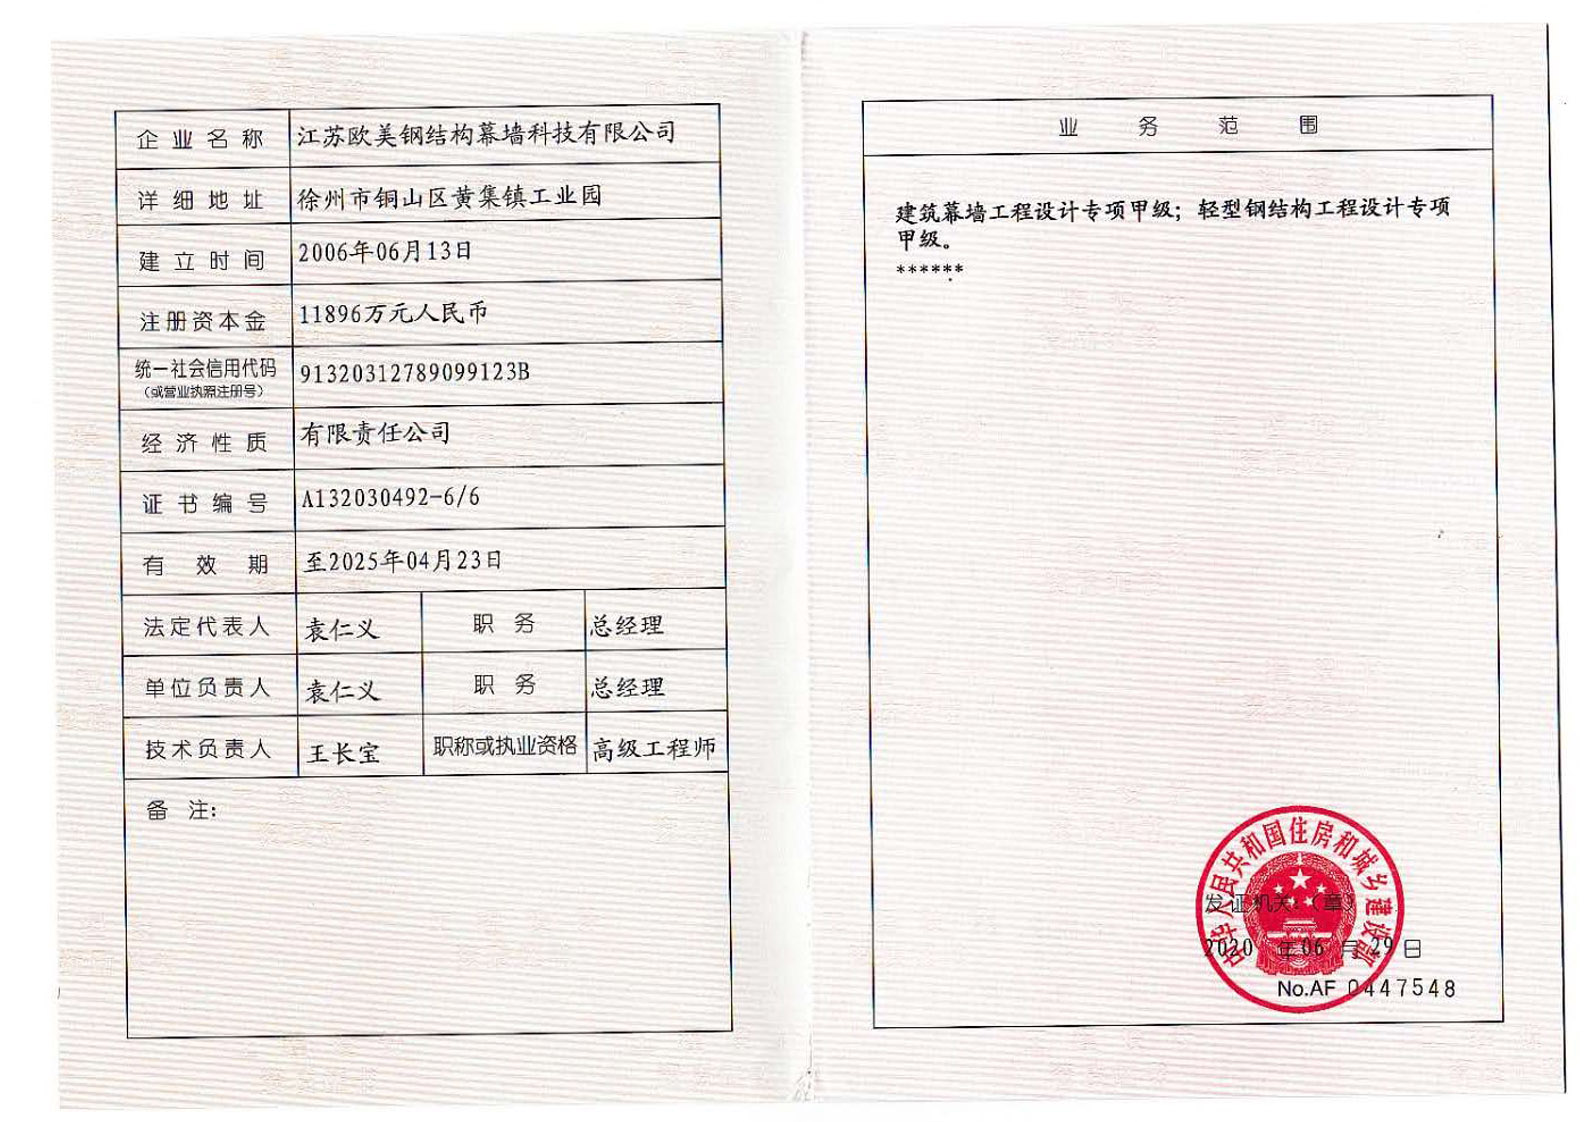 企业名称 江苏欧美钢结构幕墙科技有限公司
详细地址 徐州市铜山区黄集镇工业园
建立时间 2006年06月13日
注册资本金 11896万元人民币
统一社会信用代码 91320312789099123B
（或营业执照注册号）
经济性质 有限责任公司
证书编号 A132030492-6/6
有效期 至2025年04月23日
法定代表人 袁仁义 职务 总经理
单位负责人 袁仁义 职务 总经理
技术负责人 王长宝 职称或执业资格 高级工程师
备注：
业务范围
建筑幕墙工程设计专项甲级；轻型钢结构工程设计专项
甲级。
******
中华人民共和国住房和城乡建设部
发证机关：（章）
2020年06月29日
No.AF 0447548